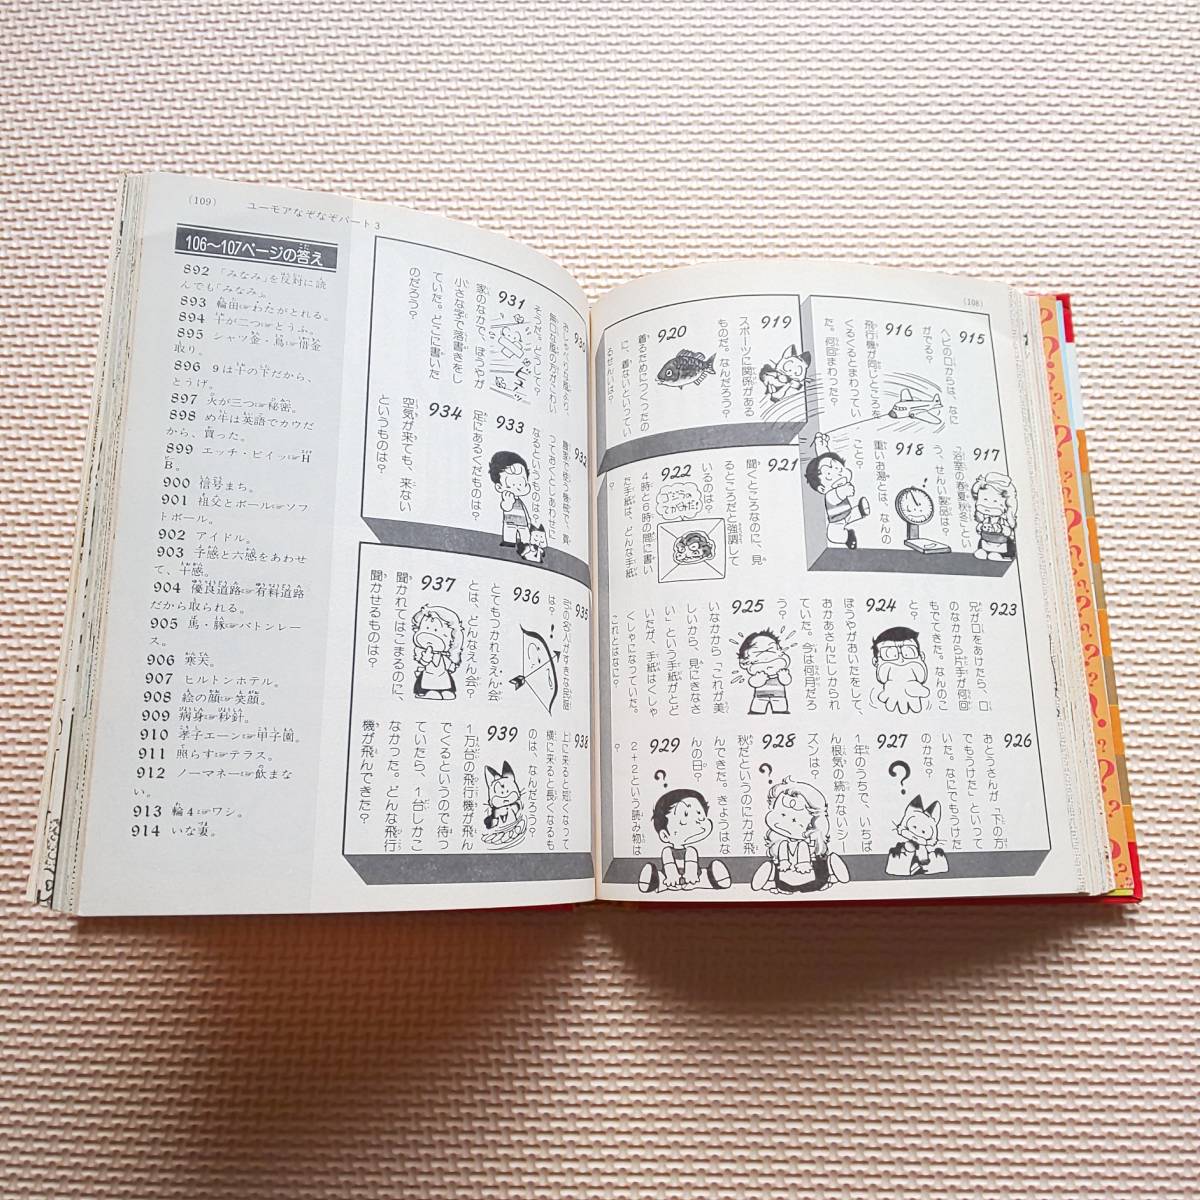 (109)
ユーモアなぞなぞパート3
106〜107ページの答え
892 「みなみ」を反対に読
んでも「みなみ」。
893 輪田☞わたがとれる。
894 十が二つ☞とうふ。
895 シャツ金・鳥☞借金
取り。
896 9は十の下だから、
とうげ。
897 火が三つ☞秘密。
898 め牛は英語でカウだ
から、買った。
899 エッチ・ビイッ☞H
B。
900 信号まち。
901 祖父とボール☞ソフ
トボール。
902 アイドル。
903 予感と六感をあわせ
て、十感。
904 優良道路☞有料道路
だから取られる。
905 馬・豚☞バトンレー
ス。
906 寒天。
907 ヒルトンホテル。
908 絵の顔☞笑顔。
909 病身☞秒針。
910 孝子エーン☞甲子園。
911 照らす☞テラス。
912 ノーマネー☞飲まな
い。
913 輪4☞ワシ。
914 いな妻。
930
おしゃべりな風より、
無口な風の方がこわい
そうだ。どうして?
931
家のなかで、ぼうやが
小さな字で落書きをし
ていた。どこに書いた
のだろう?
932
農家で使う機械で、買
っておくとしあわせに
なるというものは?
933
足にあるくだものは?
934
空気が来ても、来ない
というものは?
935
弓の名人がすきな民謡
は?
936
とてもつかれるえん会
とは、どんなえん会?
937
聞かれてはこまるのに、
聞かせるものは?
938
上に来ると短くなって
横に来ると長くなるも
のは、なんだろう?
939
1万台の飛行機が飛ん
でくるというので待っ
ていたら、1台しかこ
なかった。どんな飛行
機が飛んできた?
(108)
915
ヘビの口からは、なに
がでる?
916
飛行機が同じところを
くるくるとまわってい
た。何回まわった?
917
「浴室の春夏秋冬」とい
う、せんい製品は?
918
重いお湯とは、なんの
こと?
919
スポーツに関係がある
ものだ。なんだろう?
920
着るためにつくったの
に、着ないといってい
るせんいは?
921
聞くところなのに、見
るところだと強調して
いるのは?
922
4時と6時の間に書い
た手紙は、どんな手紙
?
ゴジラの
てがみだ!
923
兄が口をあけたら、口
のなかから片手が何回
もでてきた。なんのこ
と?
924
ぼうやがおいたをして、
おかあさんにしかられ
ていた。今は何月だろ
う?
925
いなかから「これが美
しいから、見にきなさ
い」という手紙がとど
いたが、手紙はくしゃ
くしゃになっていた。
これとはなに?
926
おとうさんが「下の方
でもうけた」といって
いた。なにでもうけた
のかな?
927
1年のうちで、いちば
ん根気の続かないシー
ズンは?
928
秋だというのにかが飛
んできた。きょうはな
んの日?
929
2+2という読み物は
?